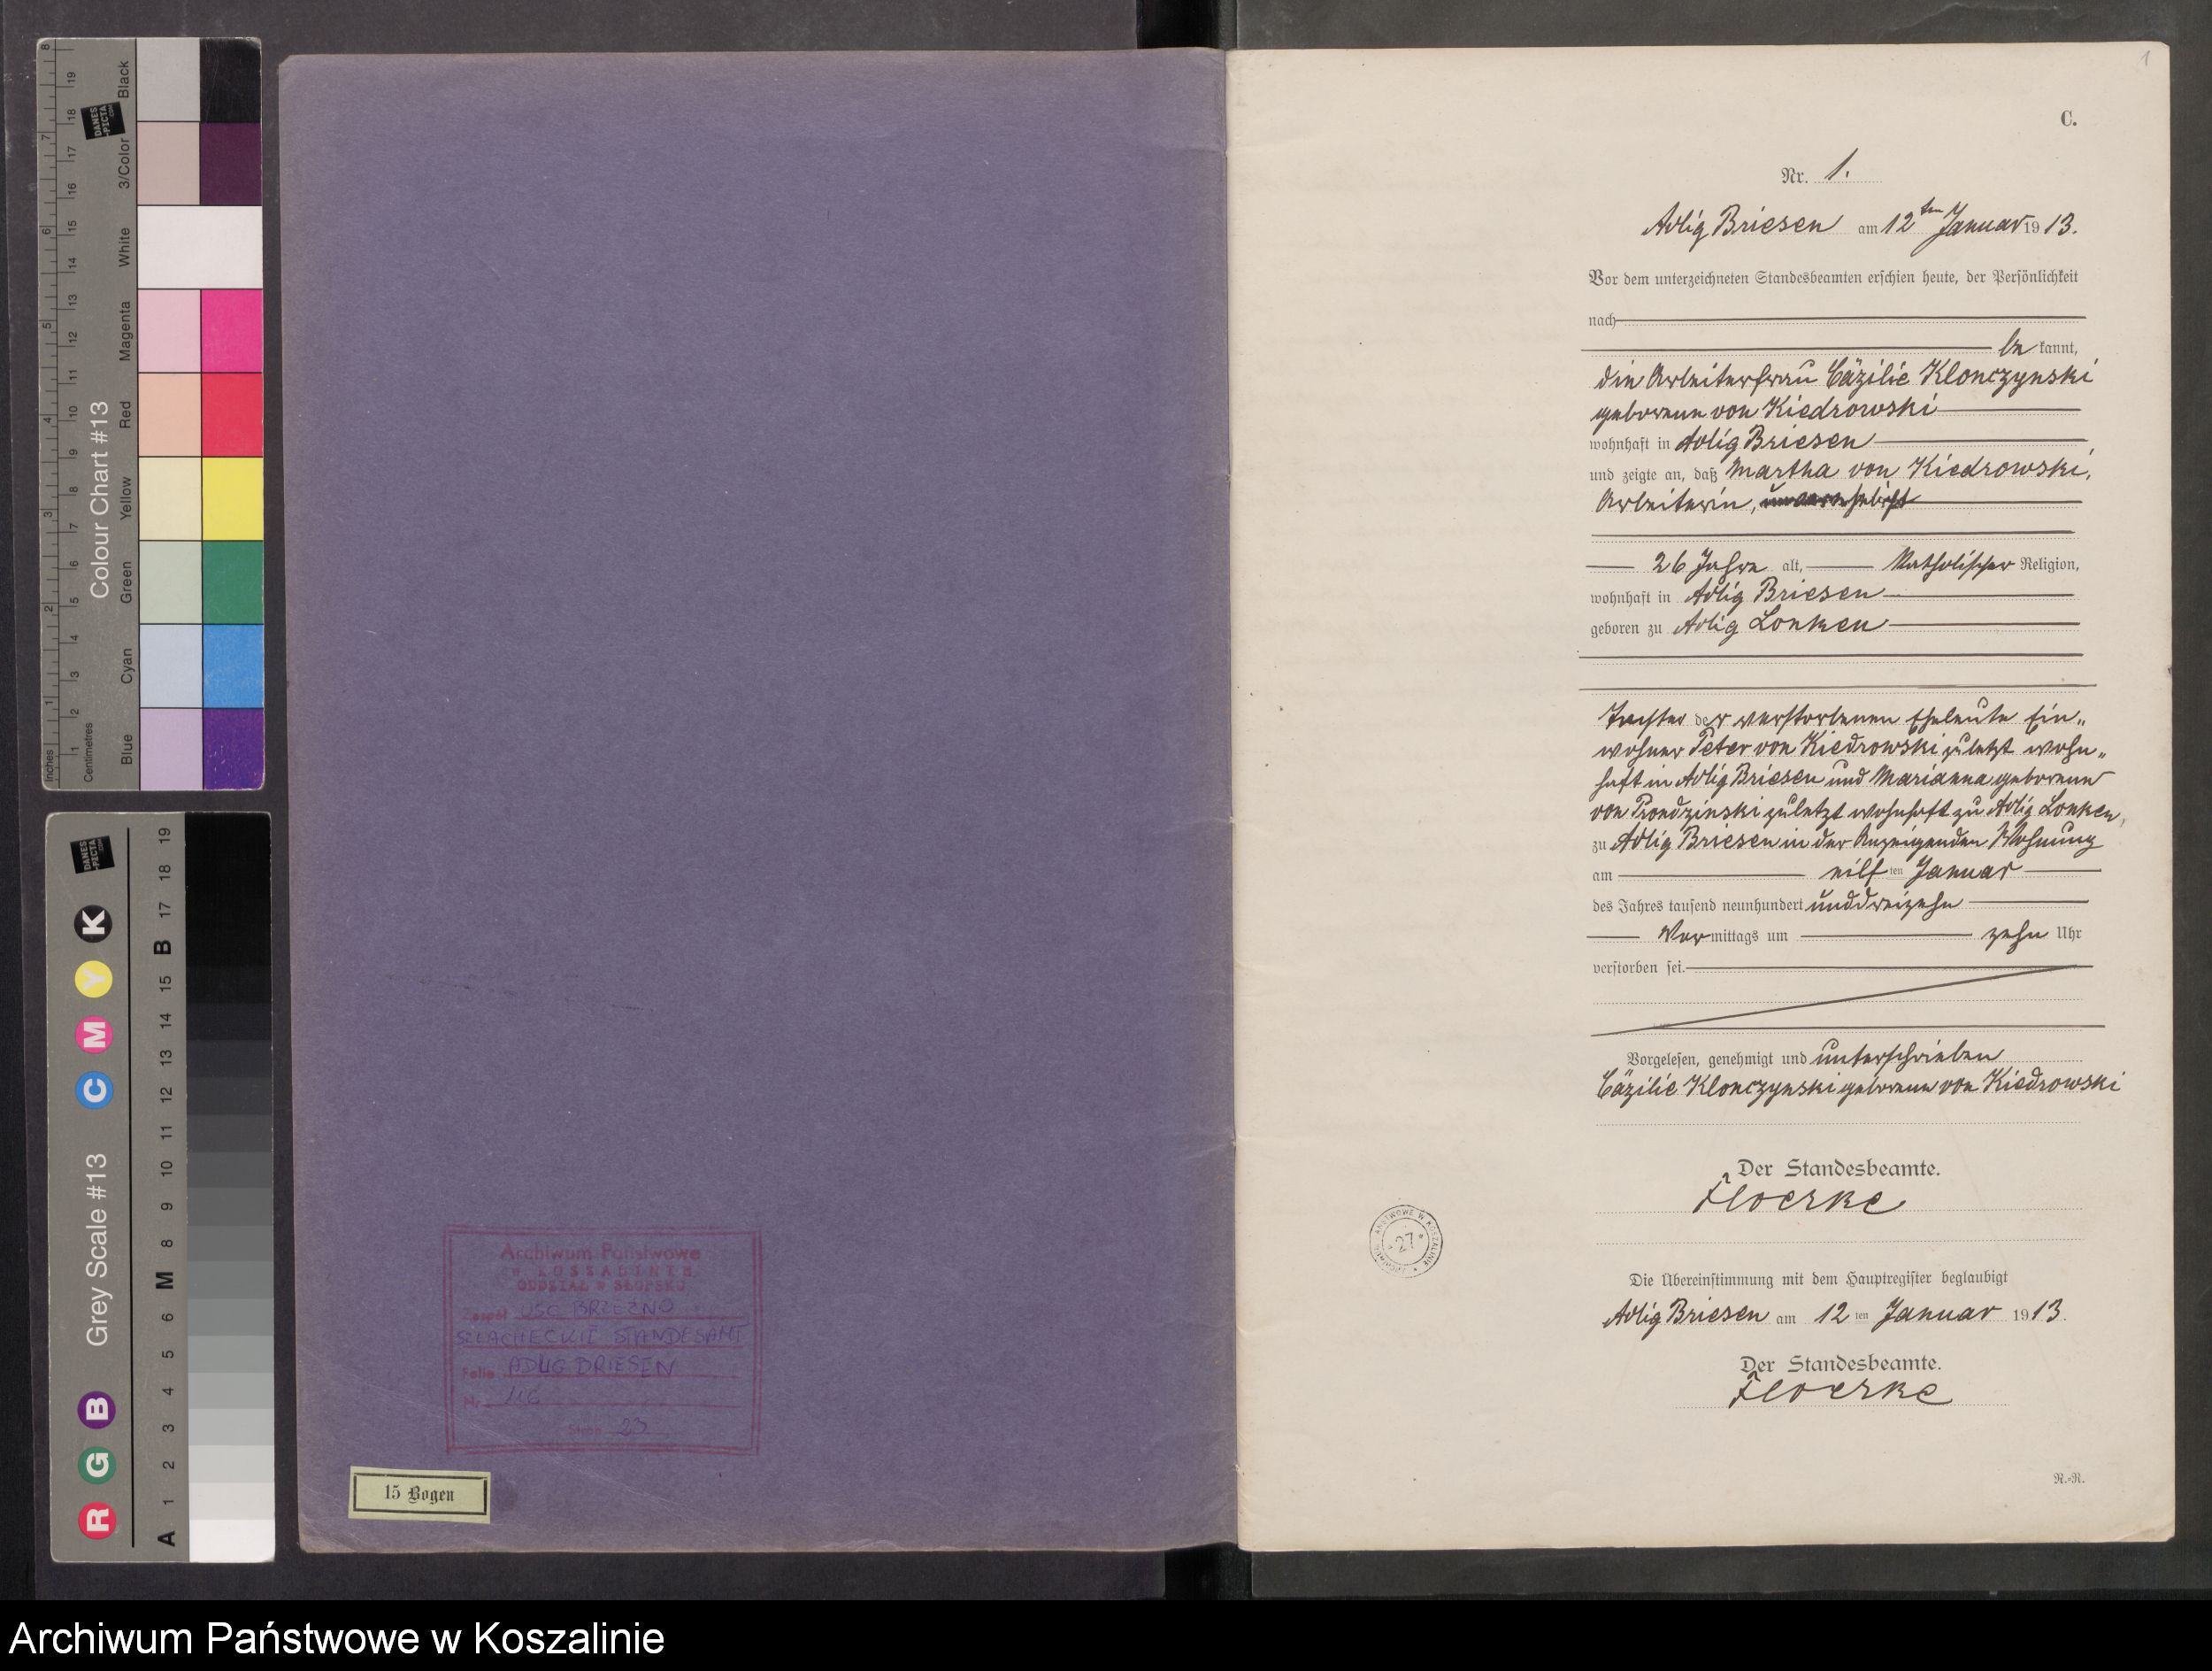 Colour Chart #13
Black
3/Color
White
Magenta
Red
Yellow
Green
Cyan
Blue
Inches
Centimetres
DANES
PICTA
.COM
Grey Scale #13
R G B
C M Y K
A 1 2 3 4 5 6 M 8 9 10 11 12 13 14 15 B 17 18 19
Archiwum Państwowe
w KOSZALINIE
ODDZIAŁ w SŁUPSKU
Zespół USC BRZEŹNO
SZLACHECKIE STANDESAMT
ADLIG BRIESEN
Nr 116
Stron 23
15 Bogen
1
C.
Nr. 1.
Adlig Briesen am 12ten Januar 1913.
Vor dem unterzeichneten Standesbeamten erschien heute, der Persönlichkeit
nach
be kannt,
die Arbeiterfrau Cäzilie Klonczynski
geborene von Kiedrowski
wohnhaft in Adlig Briesen
und zeigte an, daß Martha von Kiedrowski,
Arbeiterin, unverehelicht
26 Jahre alt, Katholischer Religion,
wohnhaft in Adlig Briesen
geboren zu Adlig Lonken
Tochter der verstorbenen Eheleute Ein„
wohner Peter von Kiedrowski zuletzt wohn„
haft in Adlig Briesen und Marianna geborene
von Prondzinski zuletzt wohnhaft zu Adlig Lonken,
zu Adlig Briesen in der Anzeigenden Wohnung
am eilf ten Januar
des Jahres tausend neunhundert und dreizehn
Vor mittags um zehn Uhr
verstorben sei.
Vorgelesen, genehmigt und unterschrieben
Cäzilie Klonczynski geborene von Kiedrowski
Der Standesbeamte.
Floerke
27
Die Übereinstimmung mit dem Hauptregister beglaubigt
Adlig Briesen am 12 ten Januar 1913.
Der Standesbeamte.
Floerke
R.=R.
Archiwum Państwowe w Koszalinie